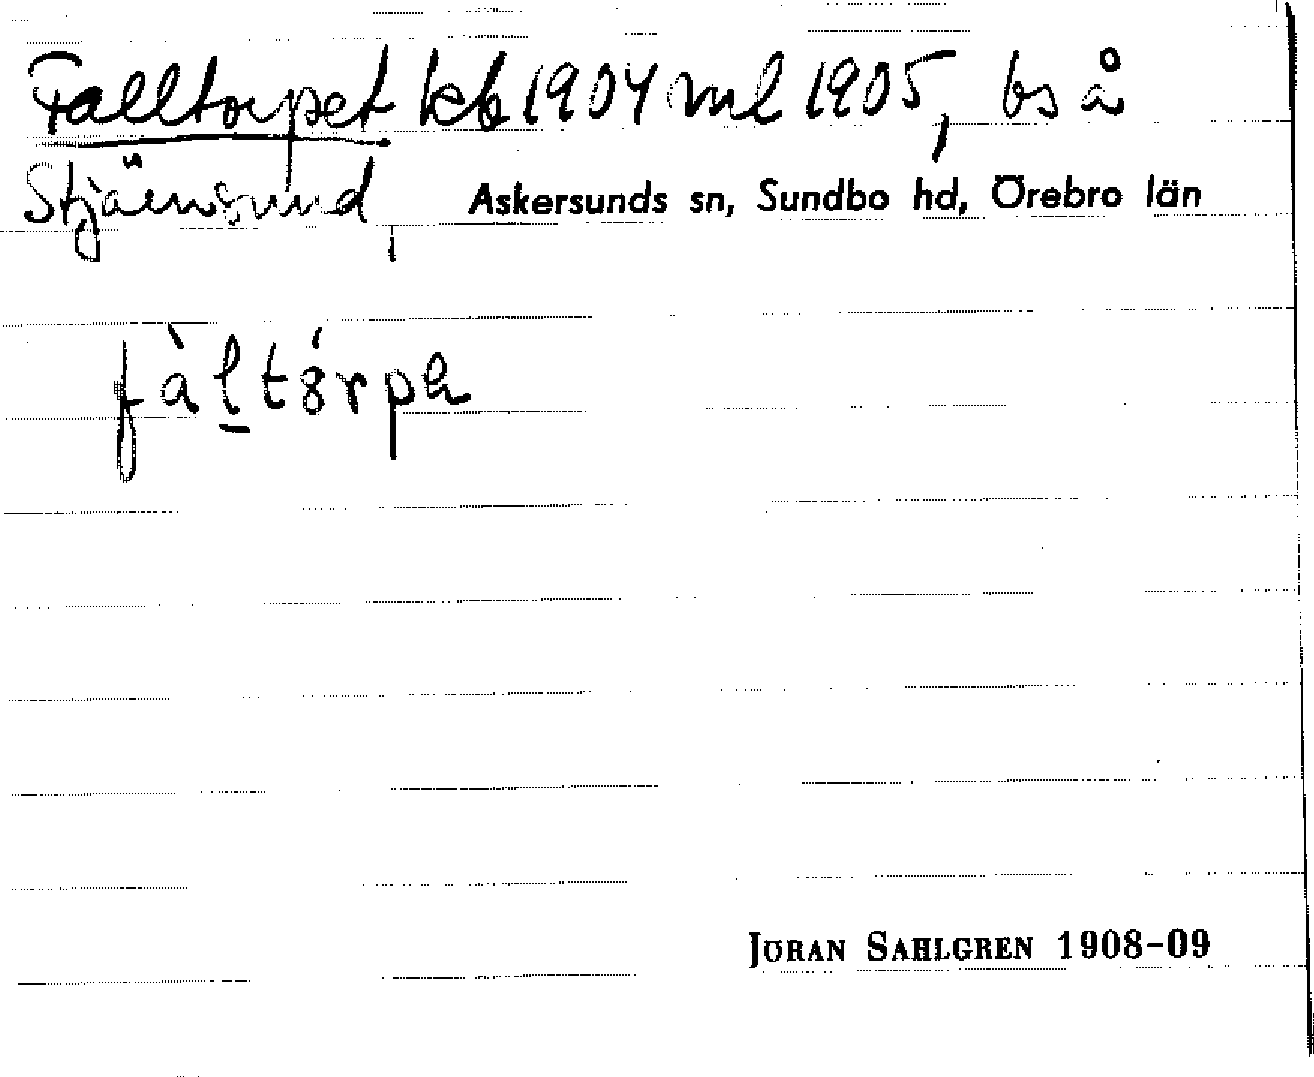 Falltorpet kb 1904 ml 1905, bs å
Stjärnsund, Askersunds sn, Sundbo hd, Örebro län
fàltórpa
JÖRAN SAHLGREN 1908-09